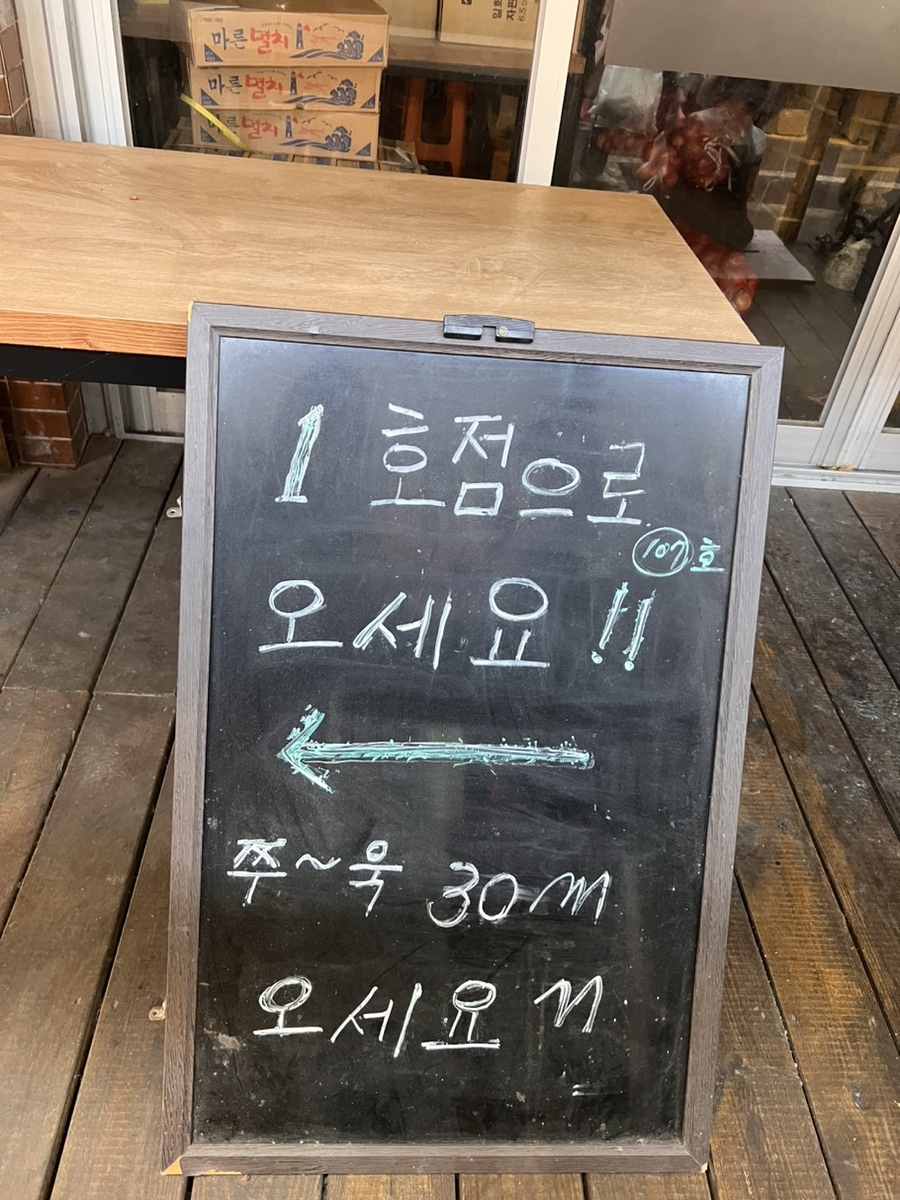 마른멸치
마른멸치
마른멸치
1 호점으로
107호
오세요 !!
←
쭈~욱 30m
오세요 ^^